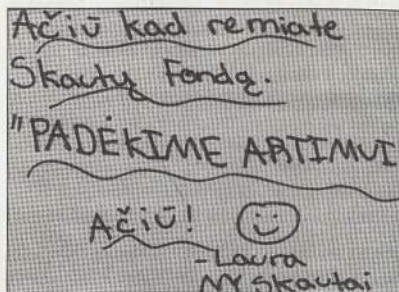 Ačiū kad remiate
Skautų Fondą.
"PADĖKIME ARTIMUI
Ačiū!
-Laura
NY Skautai